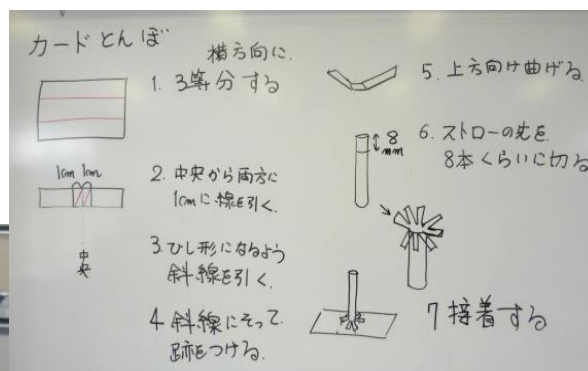 カードとんぼ
横方向に.
1. 3等分する
1cm 1cm
中央
2. 中央から両方に
1cmに線を引く.
3. ひし形になるよう
斜線を引く.
4 斜線にそって.
跡をつける.
5. 上方向け曲げる.
8
mm
6. ストローの先を
8本くらいに切る
7 接着する